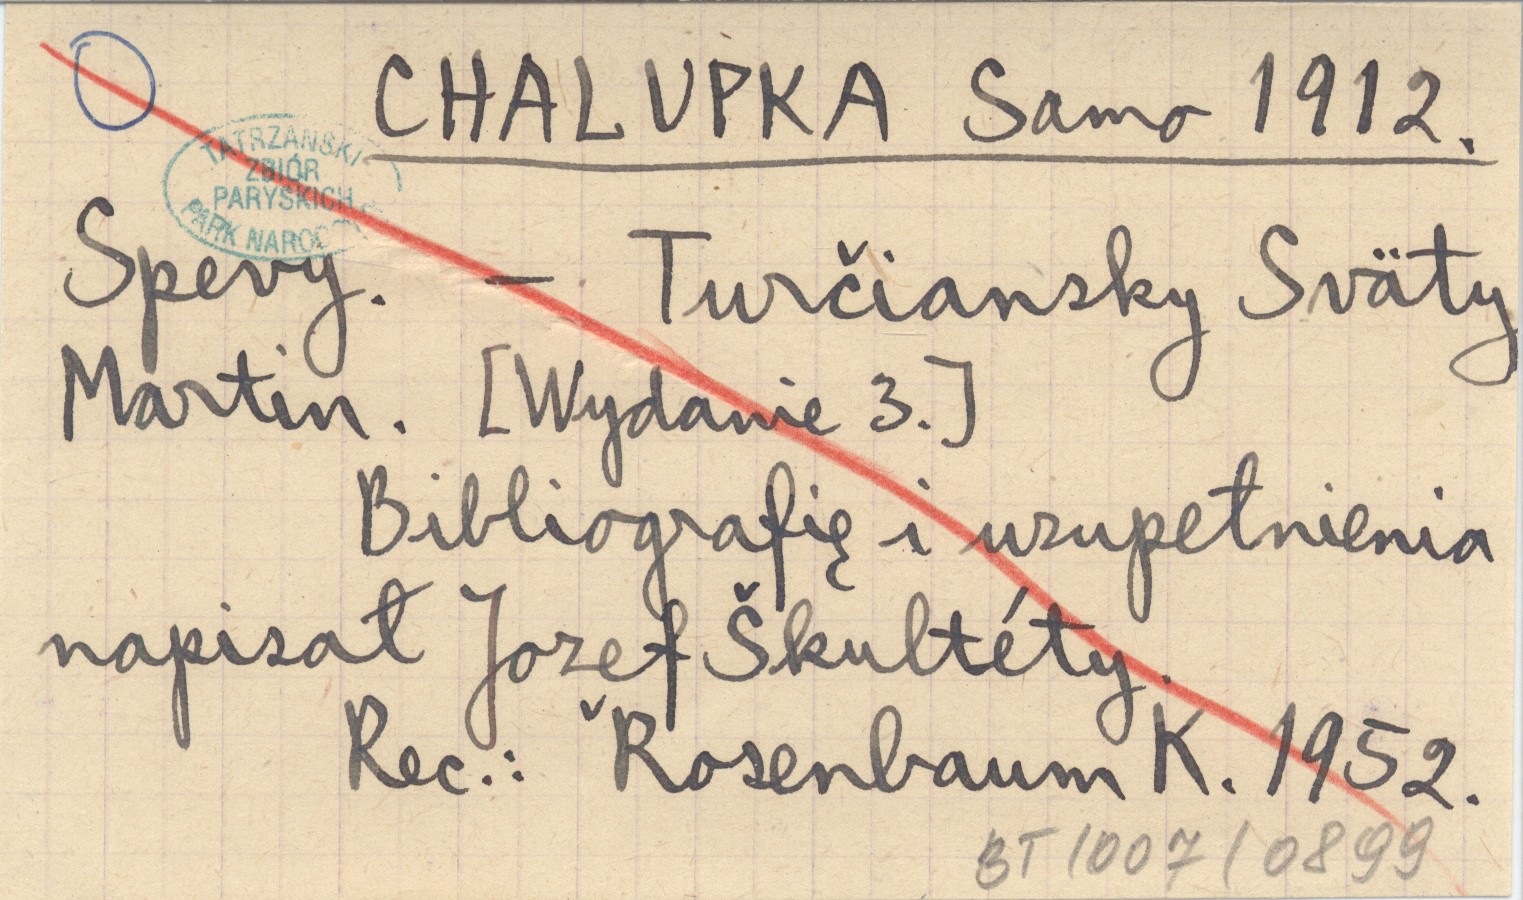 CHALUPKA Samo 1912.
TATRZAŃSKI
ZBIÓR
PARYSKICH
PARK NARODOWY
Spevy. – Turčiansky Sväty
Martin. [Wydanie 3.]
Bibliografię i uzupełnienia
napisał Jozef Škultéty.
Rec.: Řosenbaum K. 1952.
BT/007/0899